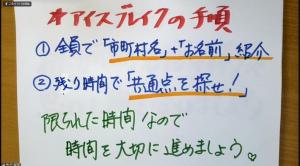 *アイスブレイクの手順
① 全員で「市町村名」+「お名前」紹介
② 残り時間で「共通点を探せ！」
限られた時間なので
時間を大切に進めましょう